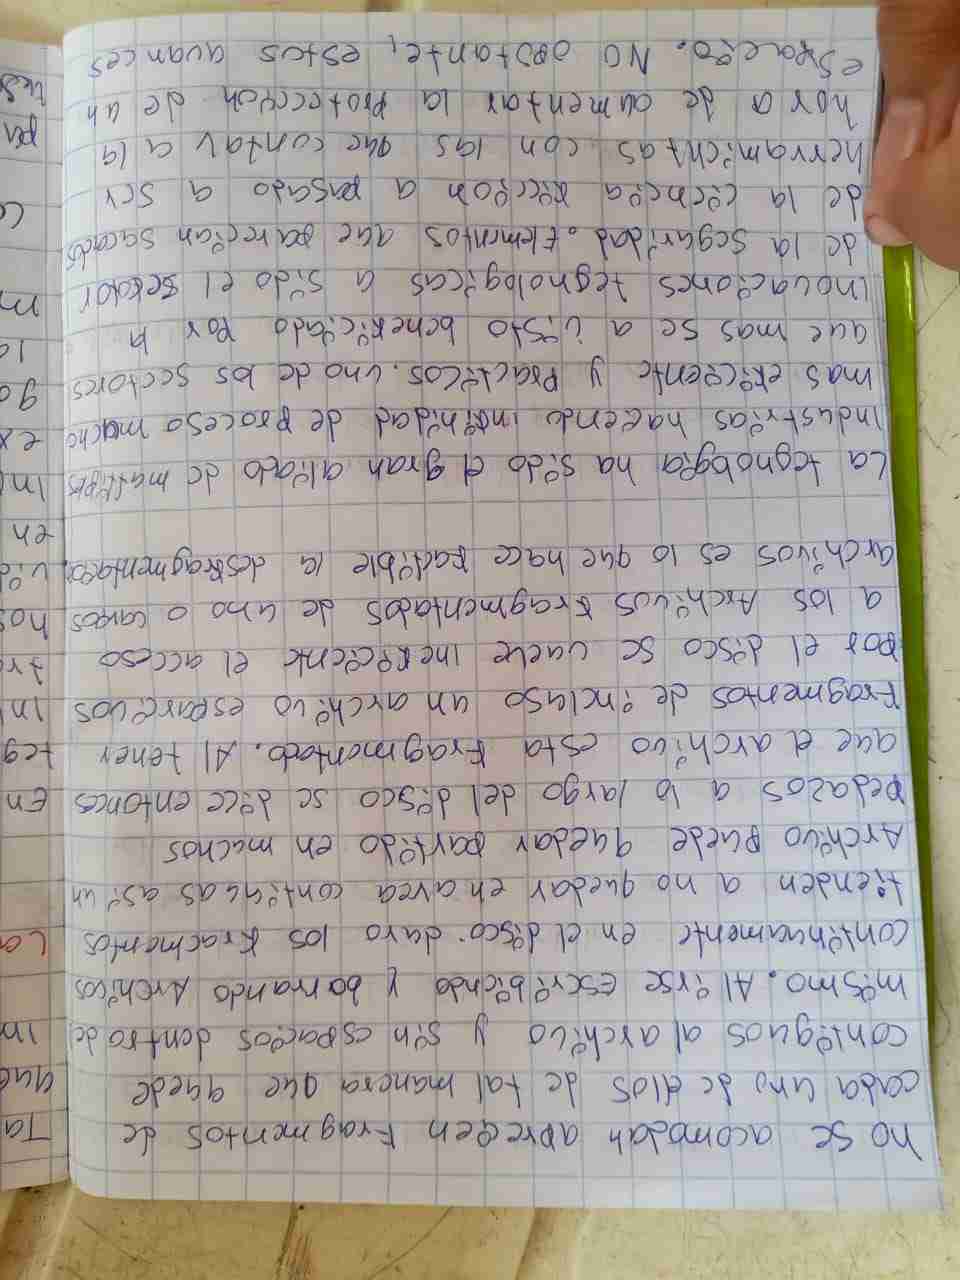 no se acomodan apregen Fragmentos de
cada uno de ellos de tal manera que quede
contiguos al archivo y sin espacios dentro de
mismo. Al irse escribiendo y borrando Archicos
continuamente en el disco duro los Fracmantos
tienden a no quedar en area contiguas asi un
Archivo puede quedar partido en muchos
pedazos a lo largo del disco se dice entonces
que el archivo esta Fragmentado. Al tener
Fragmentos de incluso un archivo esparcuos
por el disco se vuelve ineficiente el acceso
a los Archivos Fragmentados de uno o caros
archivos es lo que hace fadible la desfragmentacio
La tegnologia ha sido el gran aliado de
industrias haciendo infinidad de proceso mucho
mas eficiente y practicos. uno de los sectores
que mas se a visto beneficiado por
inovaciones tegnologicas a sido el sector
de la seguridad. Elementos que parecian sacados
de la ciencia ficcion a pasado a ser
herramientas con las que contar a la
hora de aumentar la proteccion de un
espacio. No opstante, estos avances
Ta
que
in
La
En
teg
In
tra
nos
vid
en
In
ex
ga
la
m
C
pu